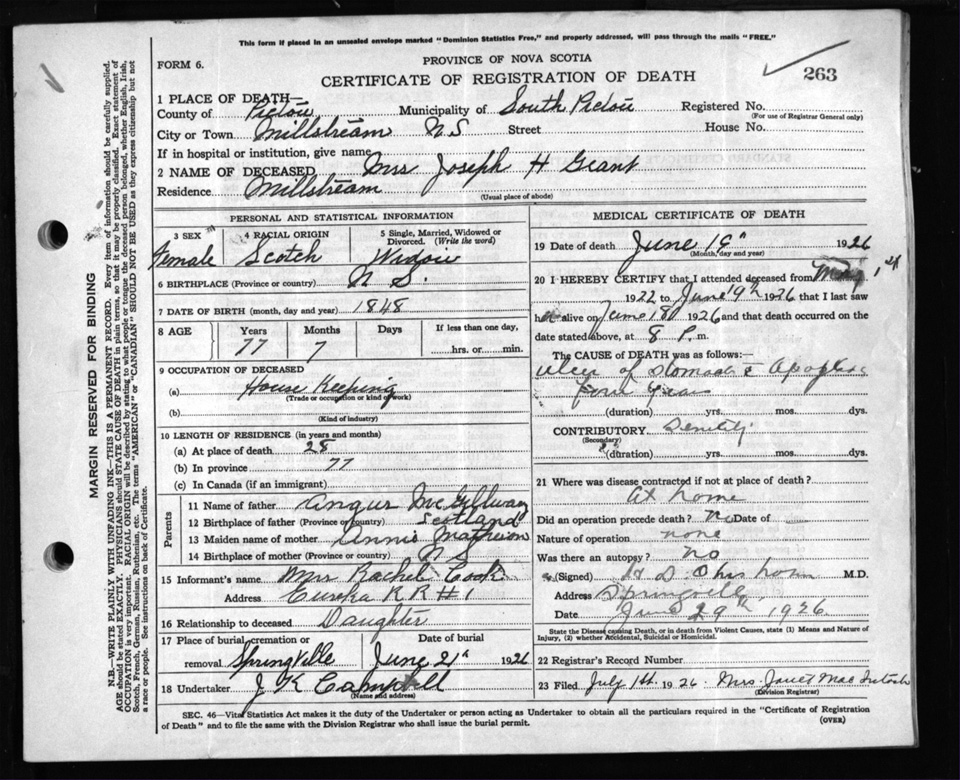 This form if placed in an unsealed envelope marked "Dominion Statistics Free," and properly addressed, will pass through the mails "FREE."
FORM 6.
PROVINCE OF NOVA SCOTIA
CERTIFICATE OF REGISTRATION OF DEATH
263
1 PLACE OF DEATH—
County of Pictou Municipality of South Pictou Registered No.
(For use of Registrar General only)
City or Town Millstream N S Street House No.
If in hospital or institution, give name
2 NAME OF DECEASED Mrs Joseph H Grant
Residence Millstream
(Usual place of abode)
PERSONAL AND STATISTICAL INFORMATION
3 SEX 4 RACIAL ORIGIN 5 Single, Married, Widowed or Divorced. (Write the word)
Female Scotch Widow
6 BIRTHPLACE (Province or country) N S.
7 DATE OF BIRTH (month, day and year) 1848
8 AGE Years Months Days If less than one day,
77 7 hrs. or min.
9 OCCUPATION OF DECEASED
(a) House Keeping
(Trade or occupation or kind of work)
(b)
(Kind of industry)
10 LENGTH OF RESIDENCE (in years and months)
(a) At place of death 28
(b) In province 77
(c) In Canada (if an immigrant)
Parents
11 Name of father Angus McGillivary
12 Birthplace of father (Province or country) Scotland
13 Maiden name of mother Annie Matheson
14 Birthplace of mother (Province or country) N S
15 Informant's name Mrs Rachel Cook
Address Eureka R R #1
16 Relationship to deceased Daughter
17 Place of burial, cremation or removal Springville Date of burial June 21st 1926
18 Undertaker J K Campbell
(Name and address)
MEDICAL CERTIFICATE OF DEATH
19 Date of death June 19th 1926
(Month, day and year)
20 I HEREBY CERTIFY that I attended deceased from May 1st
1922 to June 19th 1926 that I last saw
h alive on June 18 1926 and that death occurred on the
date stated above, at 8 P. m.
The CAUSE OF DEATH was as follows:—
Ulcer of Stomach & Apoplexy
four years
(duration) yrs. mos. dys.
CONTRIBUTORY Senility
(Secondary)
(duration) yrs. mos. dys.
21 Where was disease contracted if not at place of death?
At home
Did an operation precede death? No Date of
Nature of operation none
Was there an autopsy? No
(Signed) H D Chisholm M.D.
Address Springville
Date June 29th 1926
State the Disease causing Death, or in death from Violent Causes, state (1) Means and Nature of Injury, (2) whether Accidental, Suicidal or Homicidal.
22 Registrar's Record Number
23 Filed July 1st 1926 Mrs. Janet MacIntosh
(Division Registrar)
SEC. 46—Vital Statistics Act makes it the duty of the Undertaker or person acting as Undertaker to obtain all the particulars required in the "Certificate of Registration
of Death" and to file the same with the Division Registrar who shall issue the burial permit.
(OVER)
MARGIN RESERVED FOR BINDING
N.B.—WRITE PLAINLY WITH UNFADING INK—THIS IS A PERMANENT RECORD. Every item of information should be carefully supplied.
AGE should be stated EXACTLY. PHYSICIANS should STATE CAUSE OF DEATH in plain terms, so that it may be properly classified. Exact statement of
OCCUPATION is very important. RACIAL ORIGIN will be described by stating to what people or tongue the deceased person belonged, whether English, Irish,
Scotch, French, German, Russian, Ruthenian, etc. The terms "AMERICAN" or "CANADIAN" SHOULD NOT BE USED as they express citizenship but not
a race or people. See instructions on back of Certificate.